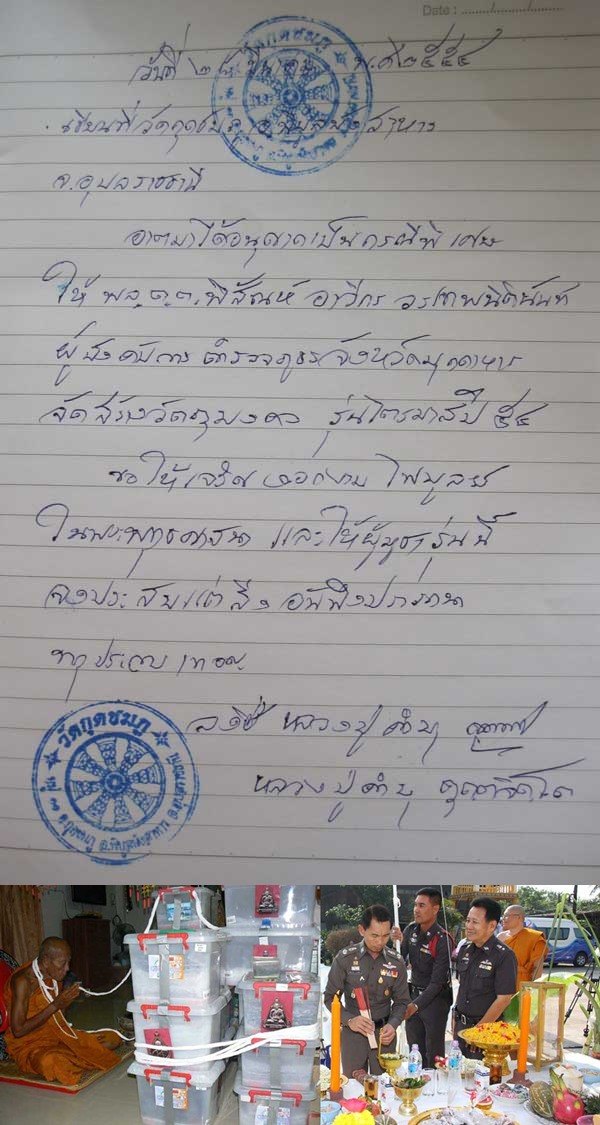 Date : ......../............/..........
วันที่ ๒๘ มีนาคม พ.ศ ๒๕๕๔
เขียนที่วัดกุดชมภู อ.พิบูลมังสาหาร
จ.อุบลราชธานี
อาตมาได้อนุญาตเป็นกรณีพิเศษ
ให้ พล.ต.ต.พิสัณห์ อาวีกร วรเทพนิตินันท์
ผู้บังคับการ ตำรวจภูธรจังหวัดมุกดาหาร
จัดสร้างวัตถุมงคล รุ่นไตรมาสปี ๕๔
ขอให้เจริญงอกงาม ไพบูลย์
ในพระพุทธศาสนา และให้ผู้บูชารุ่นนี้
จงประสบแต่สิ่งอันพึงปรารถนา
ทุกประการ เทอญ
ลงชื่อ หลวงปู่คำบุ
หลวงปู่คำบุ คุตฺตจิตฺโต
วัดกุดชมภู